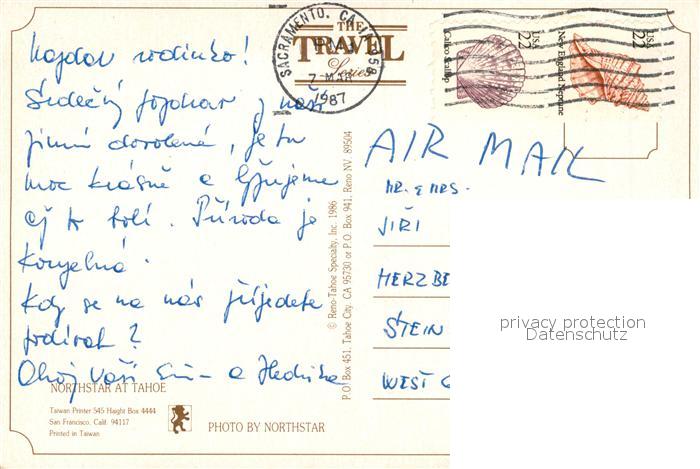 THE
TRAVEL
Series
SACRAMENTO, CA
PM
7 MAR
1987
USA 22
Calico Scallop
USA 22
New England Neptune
rodinko!
Srdečný pozdrav z naší
zimní dovolené, je tu
moc krásně a lyžujeme
až to bolí. Příroda je
kouzelná.
Kdy se na nás přijedete
podívat?
Ahoj Vaši a
AIR MAIL
MR. & MRS.
JIŘI
HERZBE
STEIN
WEST G
© Reno-Tahoe Specialty, Inc. 1986
P.O. Box 451, Tahoe City, CA 95730 or P.O. Box 941, Reno NV. 89504
privacy protection
Datenschutz
NORTHSTAR AT TAHOE
Taiwan Printer 545 Haight Box 4444
San Francisco, Calif. 94117
Printed in Taiwan
PHOTO BY NORTHSTAR